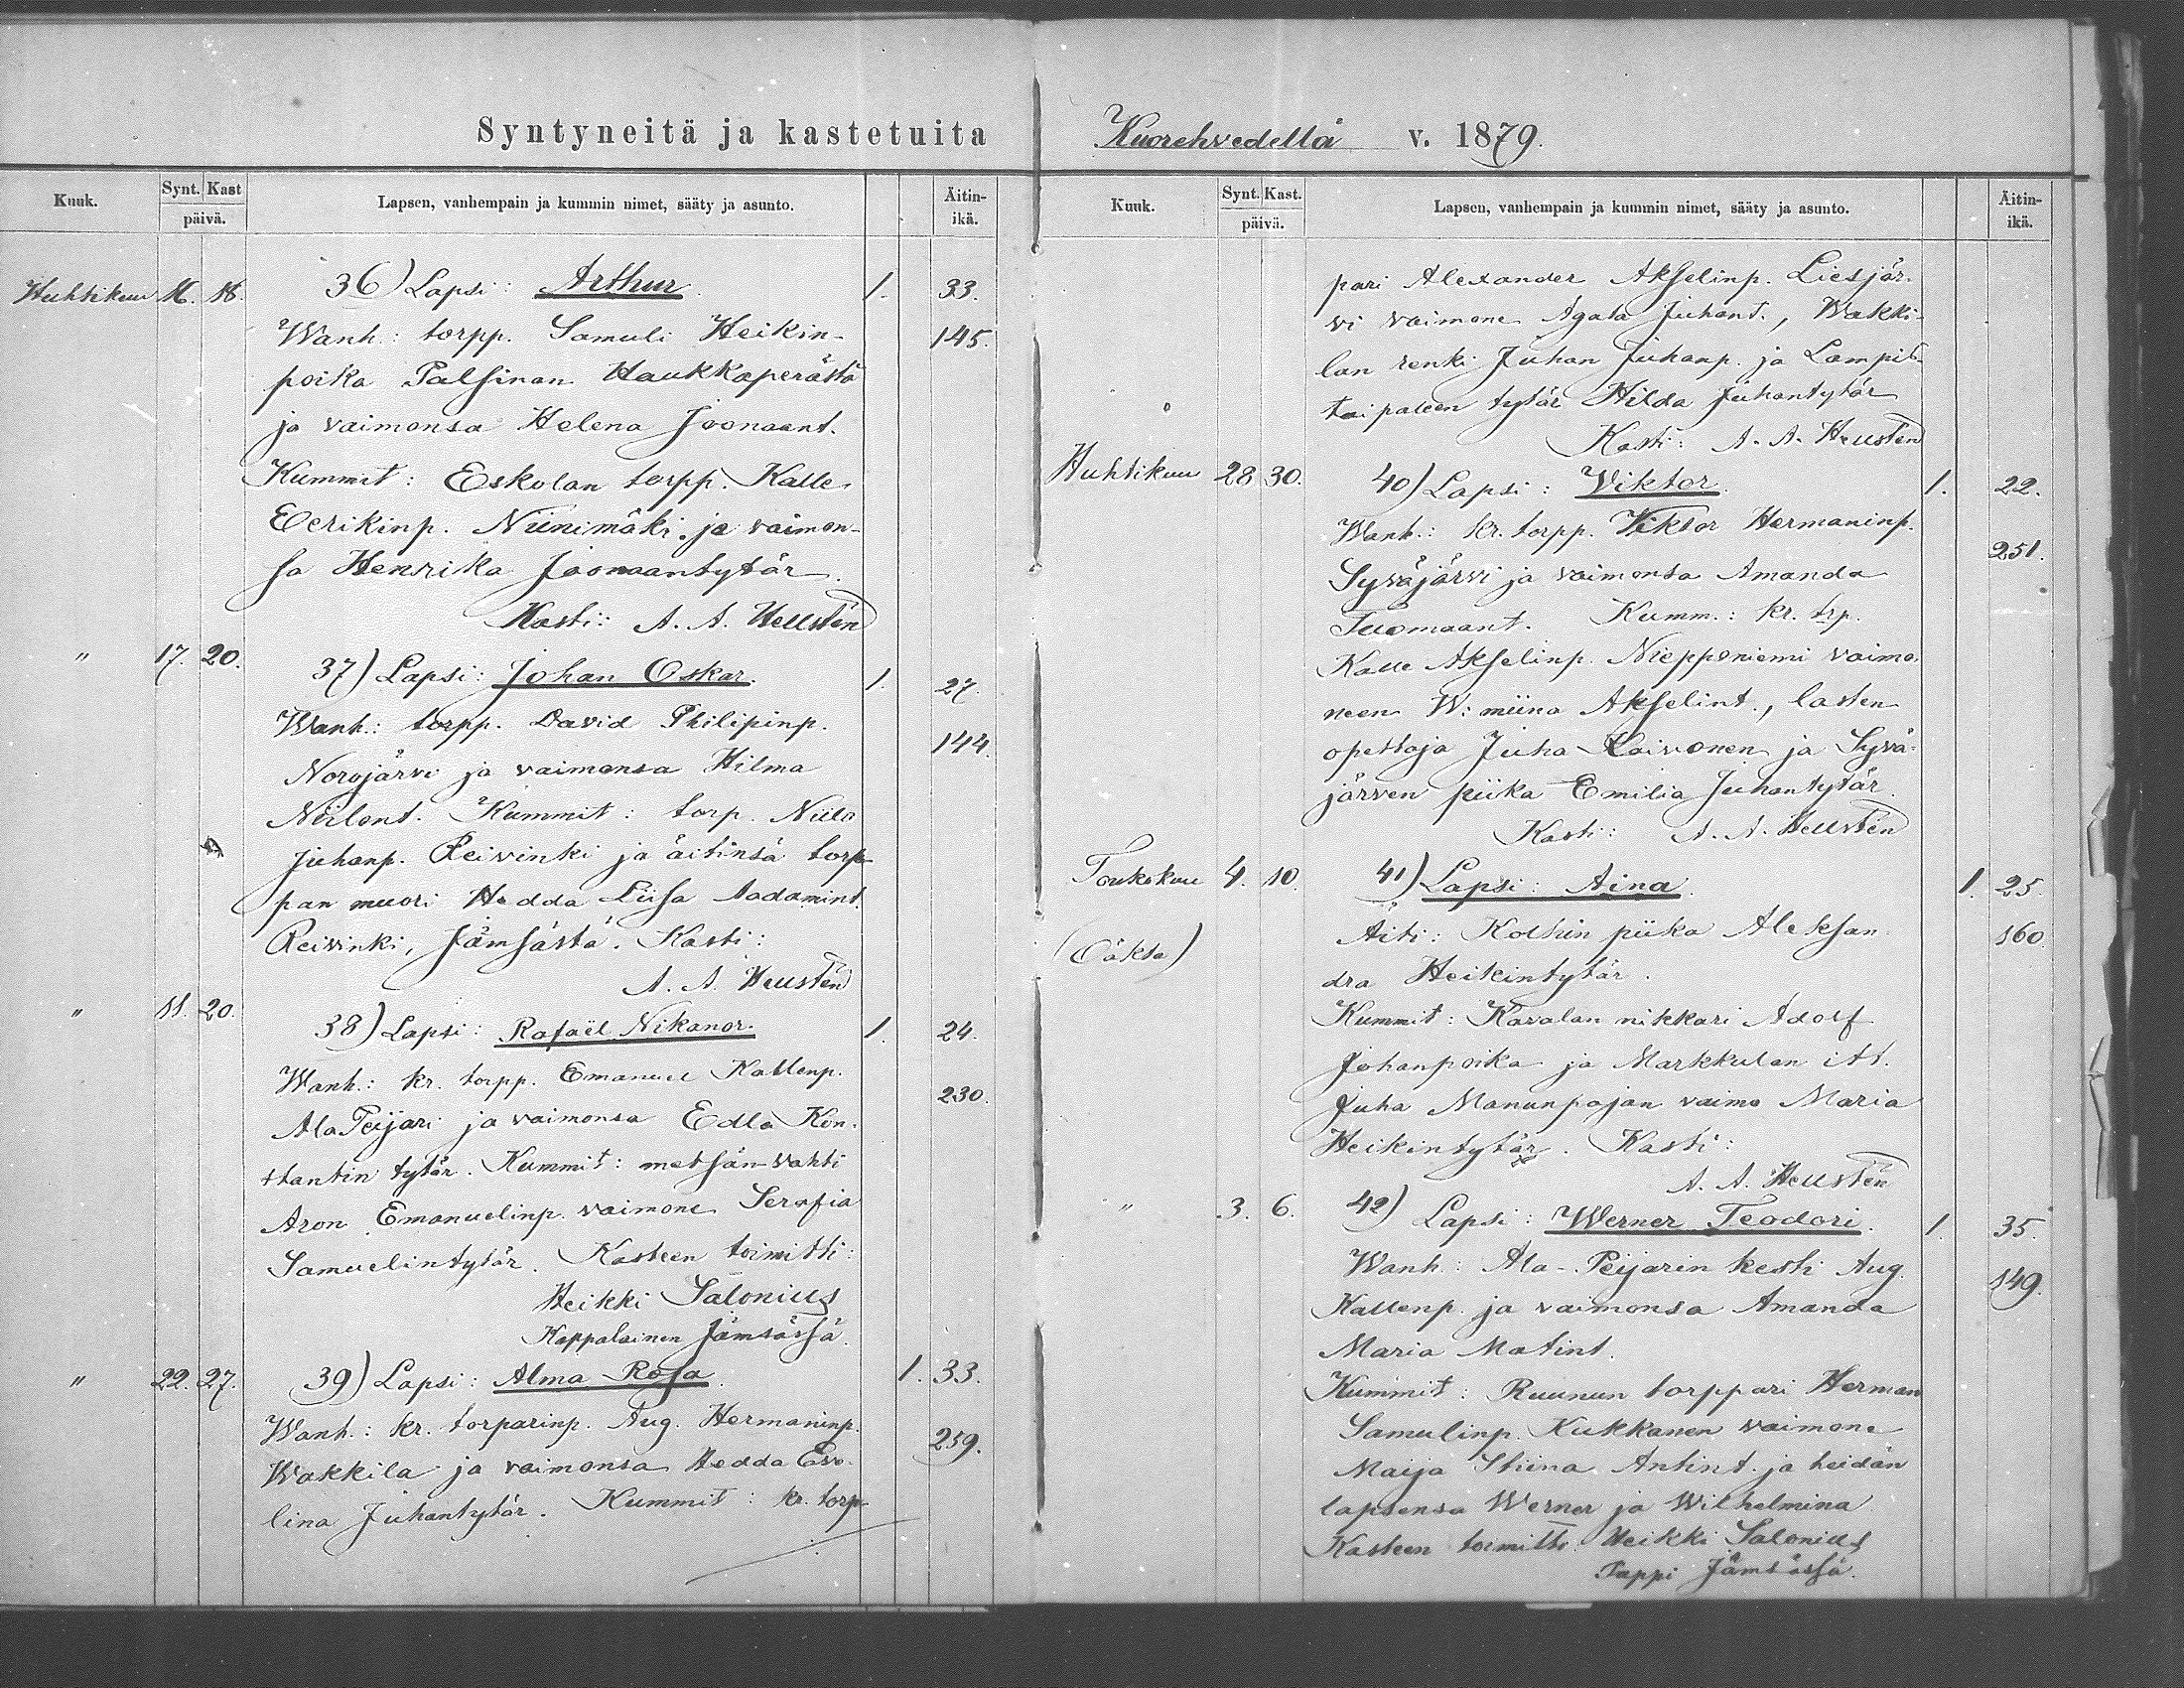 Syntyneitä ja kastetuita
Kuuk. Synt. Kast päivä. Lapsen, vanhempain ja kummin nimet, sääty ja asunto. Äitin-ikä.
Huhtikuu 16. 18. 36) Lapsi: Arthur. 1. 33.
Wanh.: torpp. Samuli Heikin- 145.
poika Palsinan Haukkaperästä
ja vaimonsa Helena Joonaant.
Kummit: Eskolan torpp. Kalle
Eerikinp. Niinimäki ja vaimon-
sa Henrika Joonaantytär.
Kasti: A. A. Hellstén
" 17. 20. 37) Lapsi: Johan Oskar. 1. 27.
Wanh.: torpp. David Philipinp. 144.
Norojärvi ja vaimonsa Hilma
Niilont. Kummit: torp. Niilo
Juhanp. Reivinki ja äitinsä torp-
pan muori Hedda Liisa Aadamint.
Reivinki, Jämsästä. Kasti:
A. A. Hellstén
" 11. 20. 38) Lapsi: Rafaël Nikanor. 1. 24.
Wanh.: kr. torpp. Emanuel Kallenp. 230.
AlaPeijari ja vaimonsa Edla Kon-
stantin tytär. Kummit: metsän-vahti
Aron Emanuelinp. vaimone Serafia
Samuelintytär. Kasteen toimitti:
Heikki Salonius
Kappalainen Jämsässä.
" 22. 27. 39) Lapsi: Alma Rosa. 1. 33.
Wanh.: kr. torparinp. Aug. Hermaninp. 259.
Wakkila ja vaimonsa Hedda Eve-
lina Juhantytär. Kummit: kr. torp-
Kuorehvedellä v. 1879.
Kuuk. Synt. Kast. päivä. Lapsen, vanhempain ja kummin nimet, sääty ja asunto. Äitin-ikä.
pari Alexander Akselinp. Liesjär-
vi vaimone Agata Juhant., Wakki-
lan renki Juhan Juhanp. ja Lampis-
taipaleen tytär Hilda Juhantytär
Kasti: A. A. Hellstén
Huhtikuu 28 30. 40) Lapsi: Viktor. 1. 22.
Wanh.: kr. torpp. Viktor Hermaninp. 251.
Syväjärvi ja vaimonsa Amanda
Tuomaant. Kumm.: kr. trp.
Kalle Akselinp. Niepponiemi vaimo-
neen W:miina Akselint., lasten
opettaja Juha Koivonen ja Syvä-
järven piika Emilia Juhantytär.
Kasti: A. A. Hellstén
Toukokuu 4. 10. 41) Lapsi: Aina. 1. 25.
(Oäkta) Äiti: Kolhin piika Aleksan- 160.
dra Heikintytär.
Kummit: Kavalan nikkari Adolf
Johanpoika ja Markkulan itl.
Juha Manunpajan vaimo Maria
Heikintytär. Kasti:
A. A. Hellstén
" 3. 6. 42) Lapsi: Werner Teodori. 1. 35.
Wanh.: Ala-Peijarin kesti Aug. 149.
Kallenp. ja vaimonsa Amanda
Maria Matint.
Kummit: Ruunun torppari Herman
Samulinp. Kukkanen vaimone
Maija Stiina Antint. ja heidän
lapsensa Werner ja Wilhelmina
Kasteen toimitti Heikki Salonius
Pappi Jämsässä.